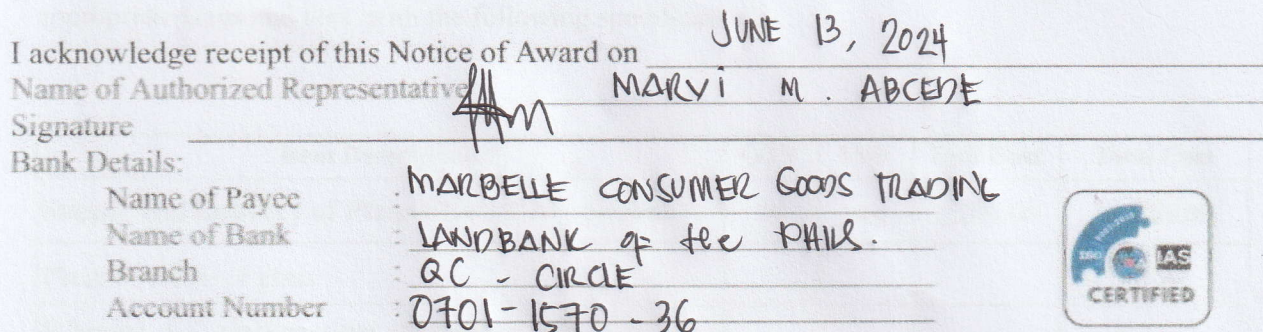 I acknowledge receipt of this Notice of Award on JUNE 13, 2024
Name of Authorized Representative MARVi M. ABCEDE
Signature
Bank Details:
Name of Payee : MARBELLE CONSUMER GOODS TRADING
Name of Bank : LANDBANK of the PHILS.
Branch : QC - CIRCLE
Account Number : 0701-1570-36
ISO
IAS
CERTIFIED